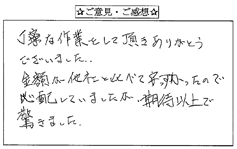 ☆ご意見・ご感想☆
丁寧な作業をして頂きありがとう
ございました..
金額が他社と比べて安かったので
心配していましたが、期待以上で
驚きました.